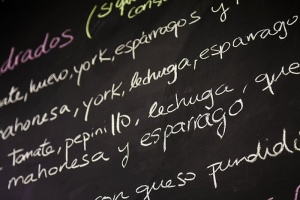 (si qu
cons
drados
ate, huevo, york, espárragos y
mahonesa, york, lechuga, esparrago
- Tomate, pepinillo, lechuga, que
mahonesa y esparrago
con queso fundid